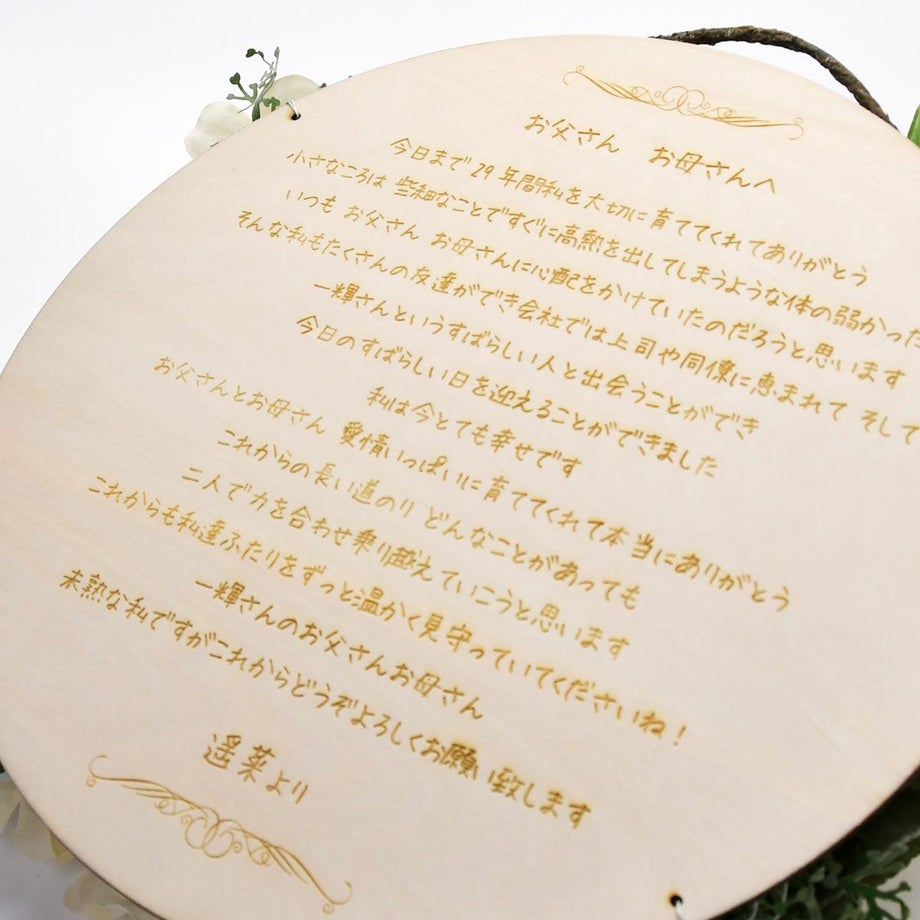 お父さん　お母さんへ
今日まで29年間私を大切に育ててくれてありがとう
小さなころは 些細なことですぐに高熱を出してしまうような体の弱かった
いつも お父さん お母さんに心配をかけていたのだろうと思います
そんな私もたくさんの友達ができ会社では上司や同僚に恵まれて そして
一輝さんというすばらしい人と出会うことができ
今日のすばらしい日を迎えることができました
私は今とても幸せです
お父さんとお母さん 愛情いっぱいに育ててくれて本当にありがとう
これからの長い道のり どんなことがあっても
二人で力を合わせ乗り越えていこうと思います
これからも私達ふたりをずっと温かく見守っていてくださいね！
一輝さんのお父さんお母さん
未熟な私ですがこれからどうぞよろしくお願い致します
遥菜より